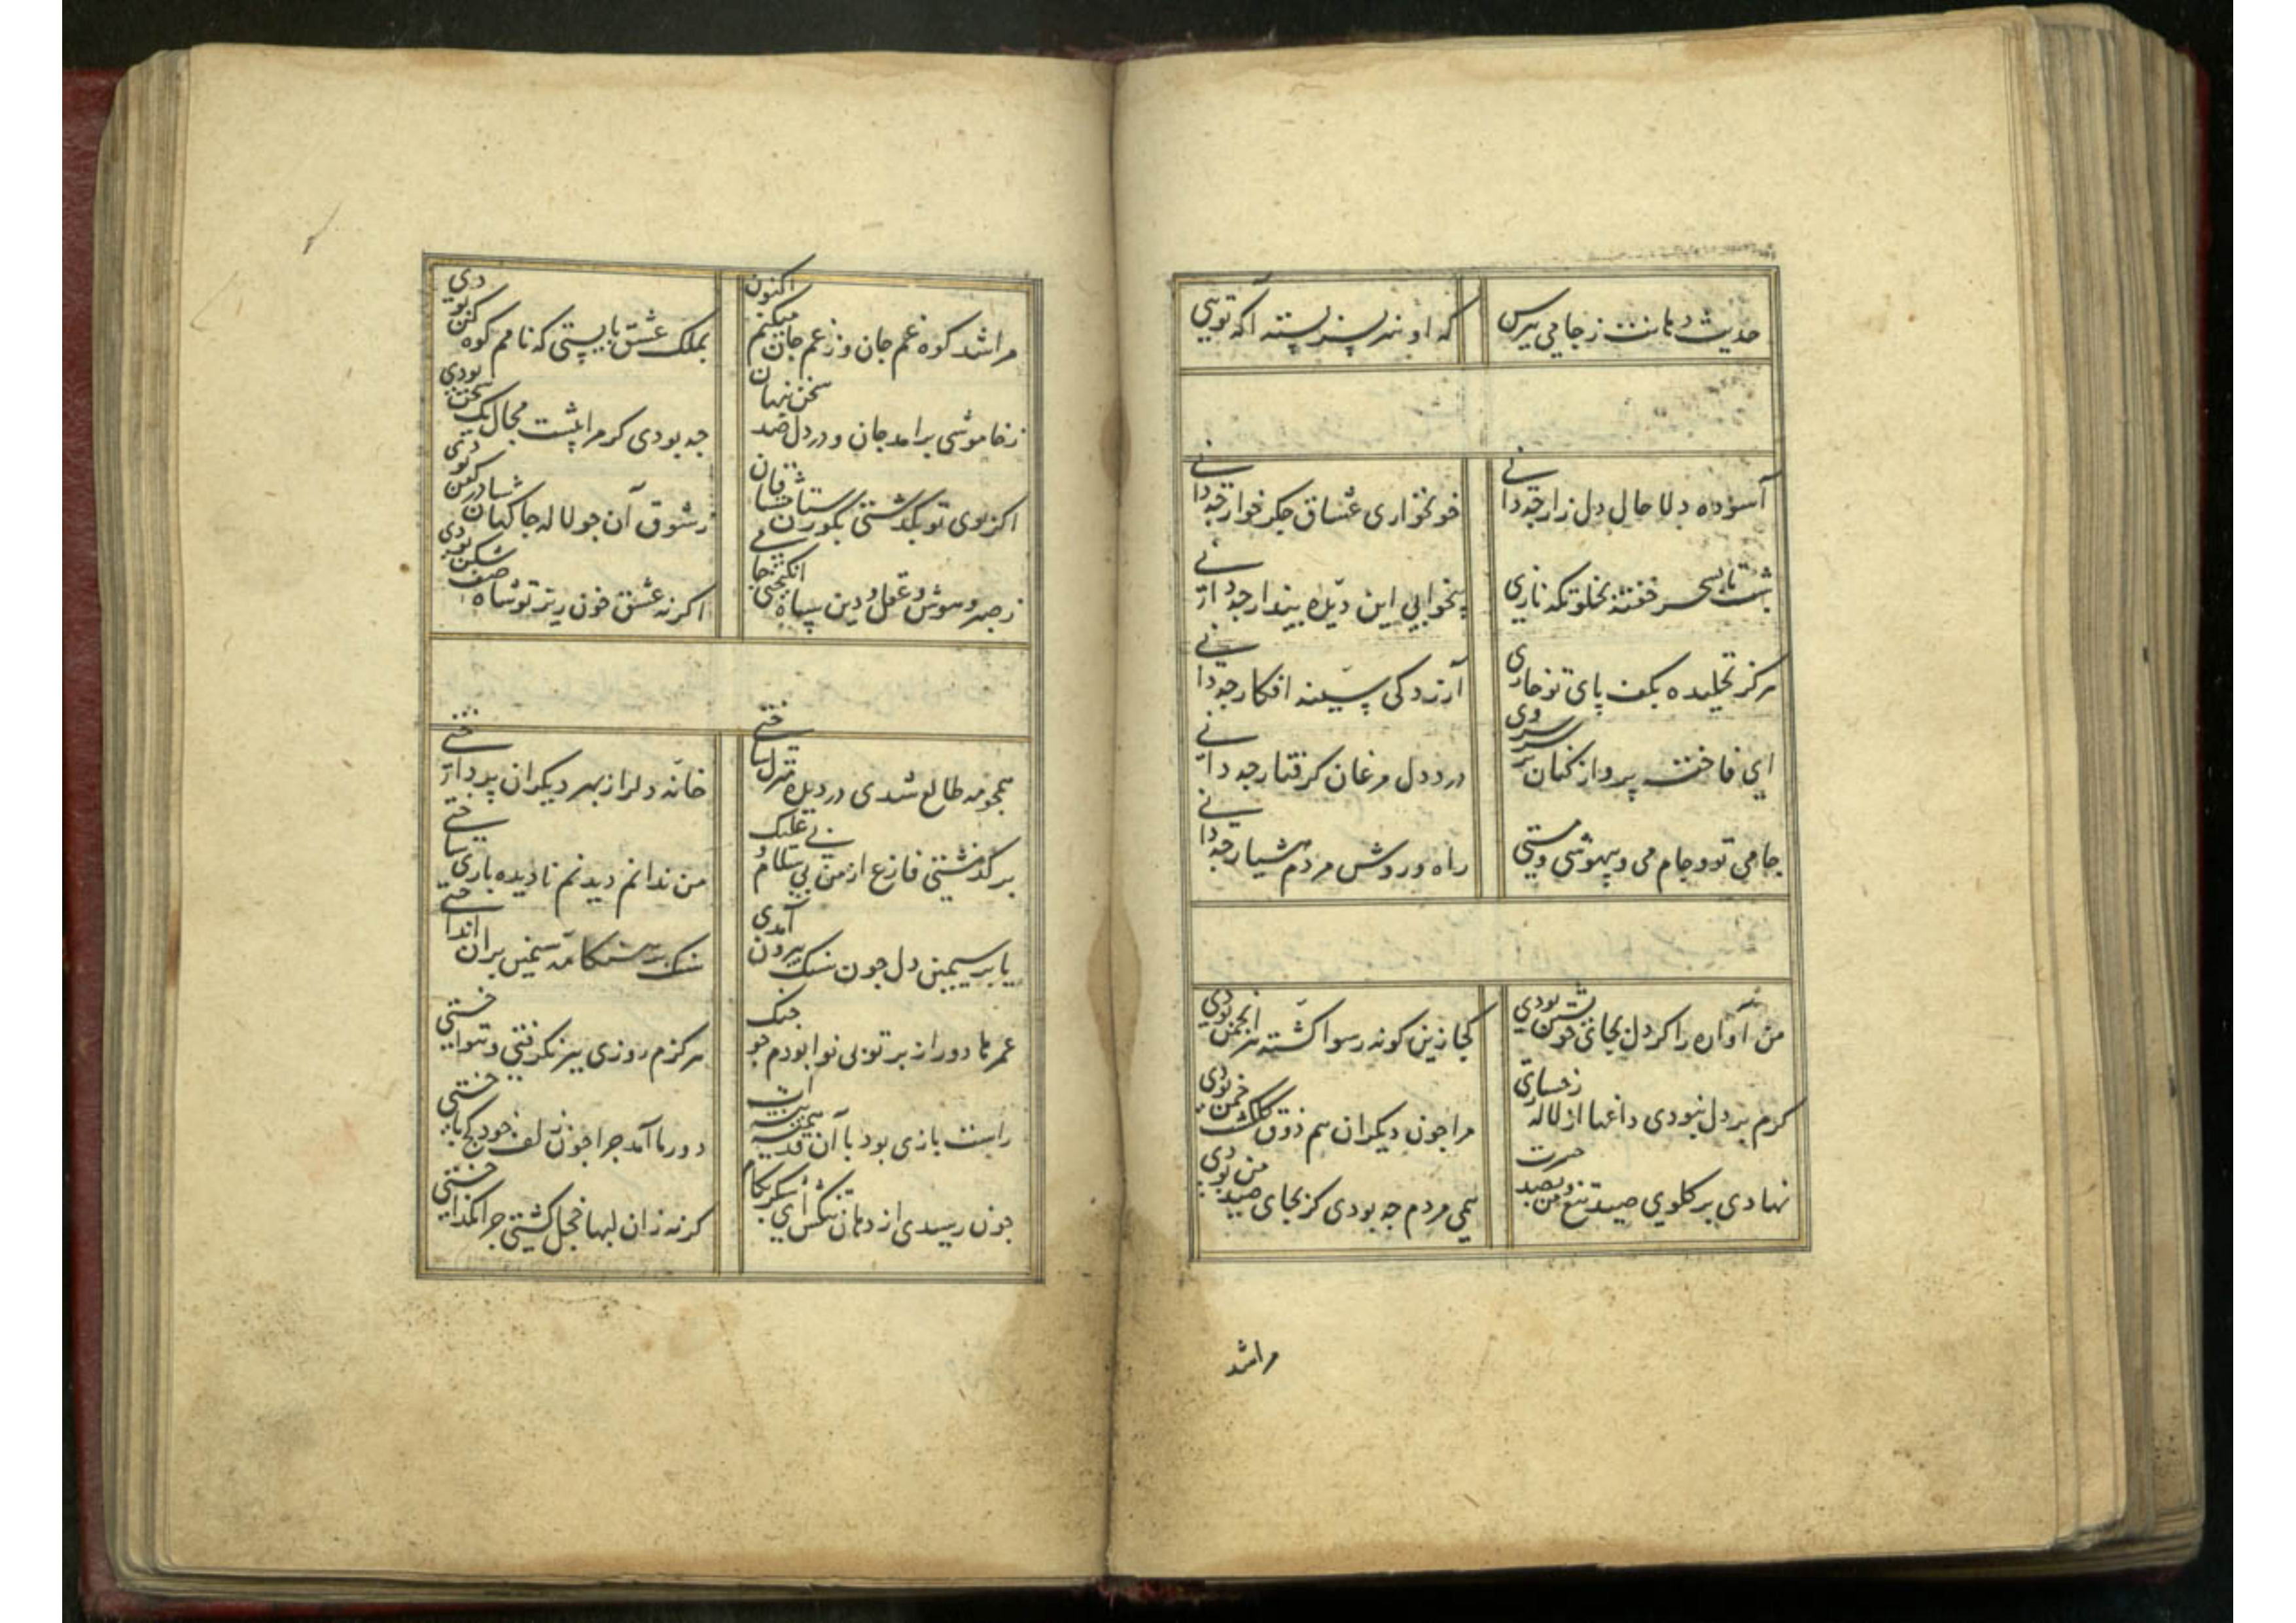 حدیث دهانت ز جامی بپرس که او نیز سربسته آگه تویی
آسوده دلا حال دل زار چه دانی خونخواری عشاق جگر خوار چه دانی
شب تا بسحر خفته بخلوتگه نازی بیخوابی این دیده بیدار چه دانی
هرگز نخلیده بکف پای تو خاری آزردگی سینه افکار چه دانی
ای فاخته پرواز کنان بر سر سروی درد دل مرغان گرفتار چه دانی
جامی تو و جام می و بیهوشی و مستی راه و روش مردم هشیار چه دانی
من آواره را گر دل بجای خویشتن بودی کجا زین گونه رسوا گشته هر انجمن بودی
گرم بر دل نبودی داغها از لاله رخساری مرا چون دیگران هم ذوق گلگشت چمن بودی
نهادی بر گلوی صید تیغ و من بصد حسرت همی مردم چه بودی گر بجای صید من بودی
مرا شد
مرا شد کوه غم جان وز غم جان میکنم اکنون بملک عشق بایستی که نامم کوه کن بودی
ز خاموشی برآمد جان و در دل صد سخن پنهان چه بودی گر مرا پیشت مجال یک سخن بودی
اگر بوی تو بگذشتی بگورستان مشتاقان ز شوق آن چو لاله جا گهان شادر کفن بودی
ز صبر و هوش و عقل و دین سپاه انگیختی جامی اگر نه عشق خون ریز تو شاه صف شکن بودی
همچو مه طالع شدی در دیده منزل ساختی خانه دل را ز بهر دیگران پرداختی
بر گذشتی فارغ از من بی سلام و بی علیک من ندانم دیدنم نادیده باری ساختی
با بر سیمین دل چون سنگ بیرون آمدی سنگ در هنگامه سیمین بران انداختی
عمرها دور از بر تو بی نوا بودم چو چنگ هرگزم روزی ببر نگرفتی و ننواختی
راست بازی بود با آن قد همیشه دور ما آمد چرا چون زلف خود کج باختی
چون رسیدی از دهان تنگش ای شکر بکام گر نه زان لبها خجل گشتی چرا بگداختی